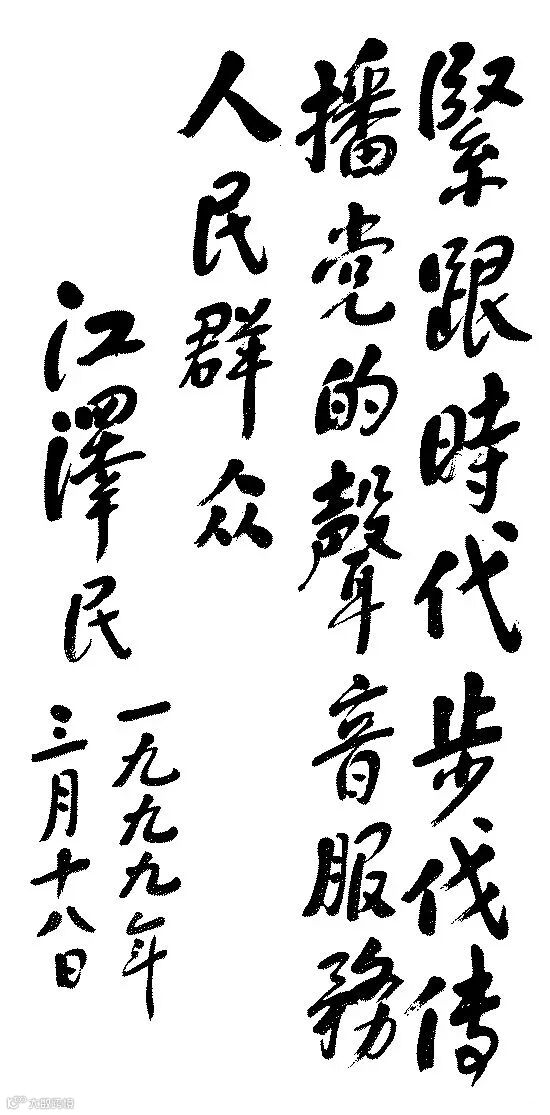 緊跟時代步伐傳
播党的聲音服務
人民群众
江澤民
一九九九年
三月十八日